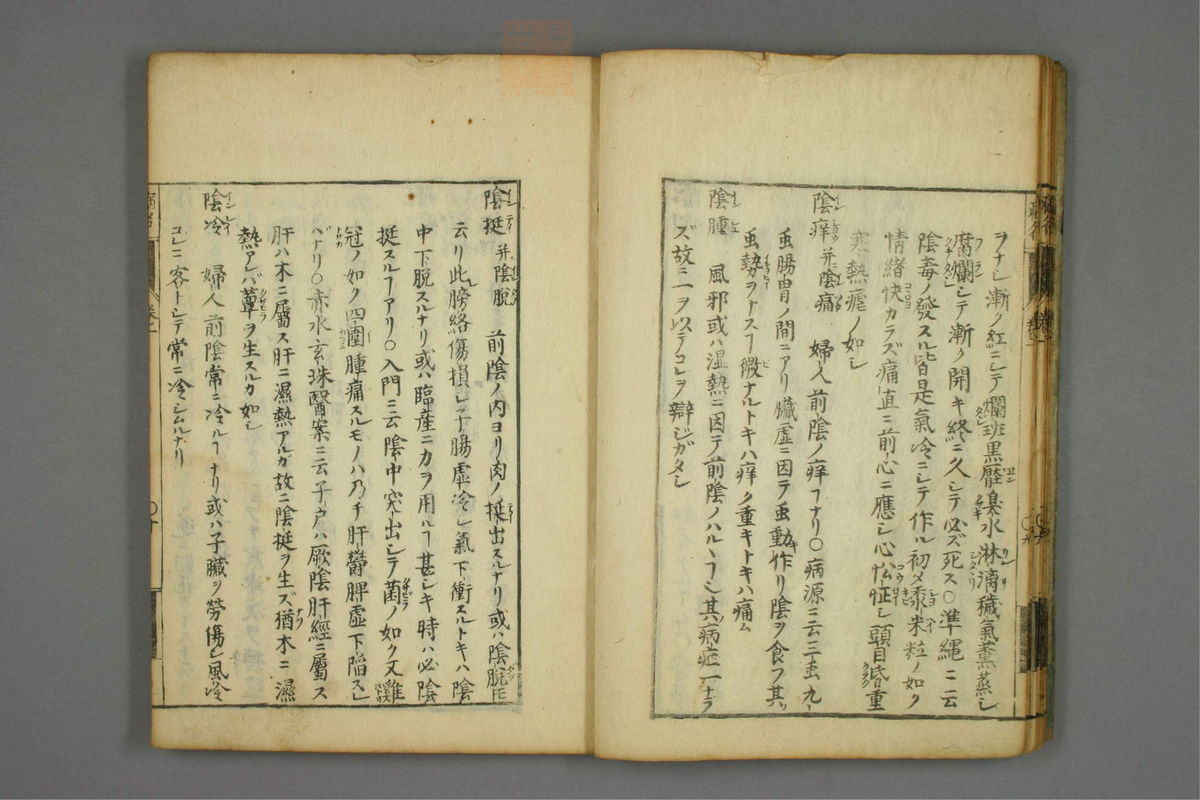 ヲナシ漸ク紅ニシテ爛斑黒㿔臭水淋滴穢氣薫蒸シ
腐爛シテ漸ク開キ終ニ久シテ必ズ死ス〇準縄ニ云
陰毒ノ發スル皆是氣冷ニシテ作ル初メ黍米粒ノ如ク
情緒快カラズ痛直ニ前心ニ應シ心忪怔シ頭目昏重
寒熱瘧ノ如シ
陰痒并ニ陰痛 婦人前陰ノ痒ヿナリ〇病源ニ云三虫九
虫腸胃ノ間ニアリ臓虚ニ因テ虫動作リ陰ヲ食フ其
虫勢ヲナスヿ微ナルトキハ痒ク重キトキハ痛ム
陰腫 風邪或ハ湿熱ニ因テ前陰ノハルヽヿシ其病症一ナラ
ズ故ニ一ヲ以テコレヲ辯ジガタシ
陰挺并陰脱 前陰ノ内ヨリ肉ノ挺出スルナリ或ハ陰脱ト
云リ此膀絡傷損シ子腸虚冷シ氣下衝スルトキハ陰
中下脱スルナリ或ハ臨産ニ力ヲ用ルヿ甚シキ時ハ必陰
挺スルヿアリ〇入門ニ云陰中突出シテ菌ノ如ク又雞
冠ノ如ク四圍腫痛スルモノハ乃チ肝鬱脾虚下陥スレ
バナリ〇赤水玄珠醫案ニ云子戸ハ厥陰肝經ニ屬ス
肝ハ木ニ屬ス肝ニ濕熱アルガ故ニ陰挺ヲ生ズ猶木ニ濕
熱アレバ蕈ヲ生スルカ如シ
陰冷 婦人前陰常ニ冷ルヿナリ或ハ子臓ヲ勞傷シ風冷
コレニ客トシテ常ニ冷シムルナリ